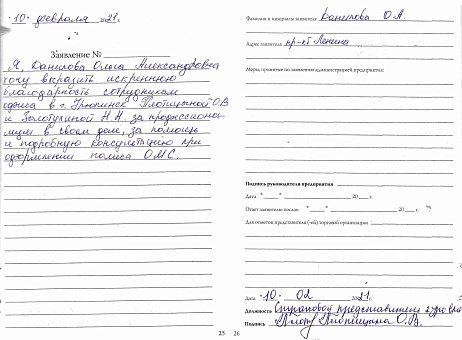 "10" февраля 2021 г.
Заявление №
Я, Данилова Ольга Александровна
хочу выразить искреннюю
благодарность сотрудникам
офиса в г. Урюпинск Плотицыной О.В
и Золотухиной Н.Н. за профессиона-
лизм в своем деле, за помощь
и подробную консультацию при
оформлении полиса ОМС.
25
Фамилия и инициалы заявителя Данилова О.А.
Адрес заявителя пр-кт Ленина
Меры, принятые по заявлению администрацией предприятия:
Подпись руководителя предприятия
Дата " " 20 г.
Ответ заявителю послан " " 20 г.
Для отметок представителя (-ей) торговой организации
Дата "10" 02 2021 г.
Должность страховой представитель 1 уровня
Подпись Плотицына О.В.
26